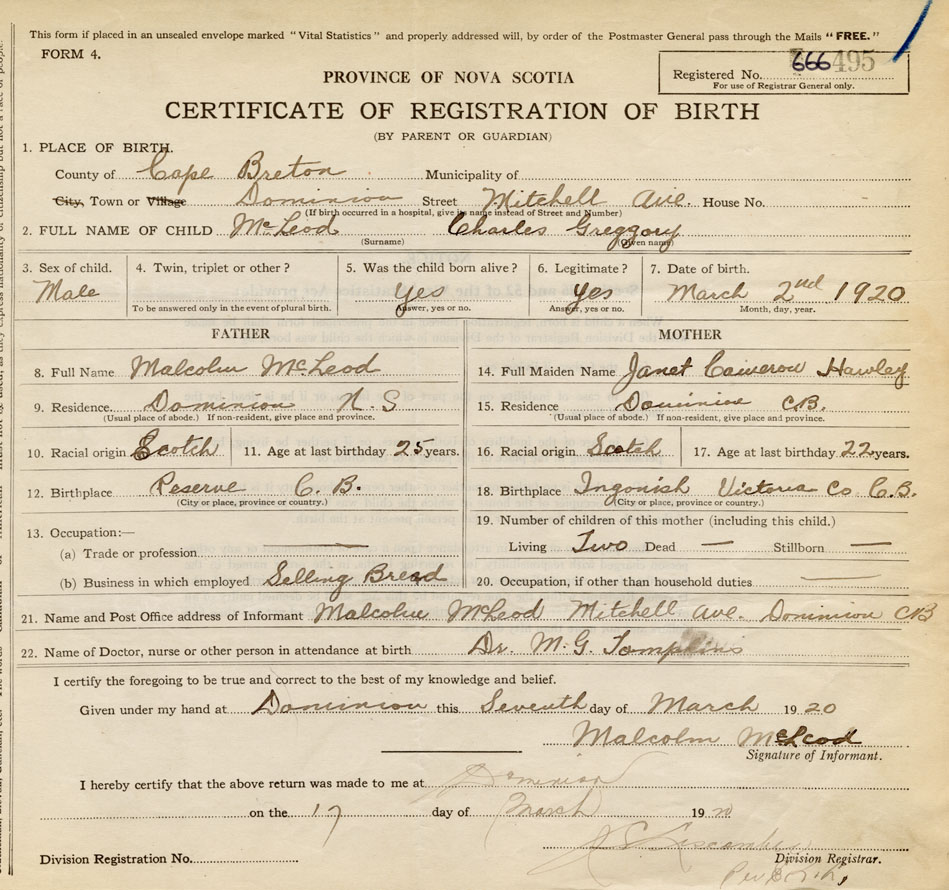 This form if placed in an unsealed envelope marked "Vital Statistics" and properly addressed will, by order of the Postmaster General pass through the Mails "FREE."
FORM 4.
Registered No. 666495
For use of Registrar General only.
PROVINCE OF NOVA SCOTIA
CERTIFICATE OF REGISTRATION OF BIRTH
(BY PARENT OR GUARDIAN)
1. PLACE OF BIRTH.
County of Cape Breton Municipality of
City, Town or Village Dominion Street Mitchell Ave. House No.
(If birth occurred in a hospital, give its name instead of Street and Number)
2. FULL NAME OF CHILD McLeod Charles Greggory
(Surname) (Given name)
3. Sex of child. 4. Twin, triplet or other? 5. Was the child born alive? 6. Legitimate? 7. Date of birth.
Male Yes Yes March 2nd 1920
To be answered only in the event of plural birth. Answer, yes or no. Answer, yes or no. Month, day, year.
FATHER MOTHER
8. Full Name Malcolm McLeod 14. Full Maiden Name Janet Cameron Hawley
9. Residence. Dominion N.S 15. Residence Dominion C.B.
(Usual place of abode.) If non-resident, give place and province. (Usual place of abode.) If non-resident, give place and province.
10. Racial origin Scotch 11. Age at last birthday 25 years. 16. Racial origin Scotch 17. Age at last birthday 22 years.
12. Birthplace Reserve C.B. 18. Birthplace Ingonish Victoria Co C.B.
(City or place, province or country.) (City or place, province or country.)
13. Occupation:— 19. Number of children of this mother (including this child.)
(a) Trade or profession — Living Two Dead — Stillborn —
(b) Business in which employed Selling Bread 20. Occupation, if other than household duties. —
21. Name and Post Office address of Informant Malcolm McLeod Mitchell Ave. Dominion CB
22. Name of Doctor, nurse or other person in attendance at birth Dr. M.G. Tompkins
I certify the foregoing to be true and correct to the best of my knowledge and belief.
Given under my hand at Dominion this Seventh day of March 1920
Malcolm McLeod
Signature of Informant.
I hereby certify that the above return was made to me at Dominion
on the 17 day of March 1920
Division Registration No. Division Registrar.